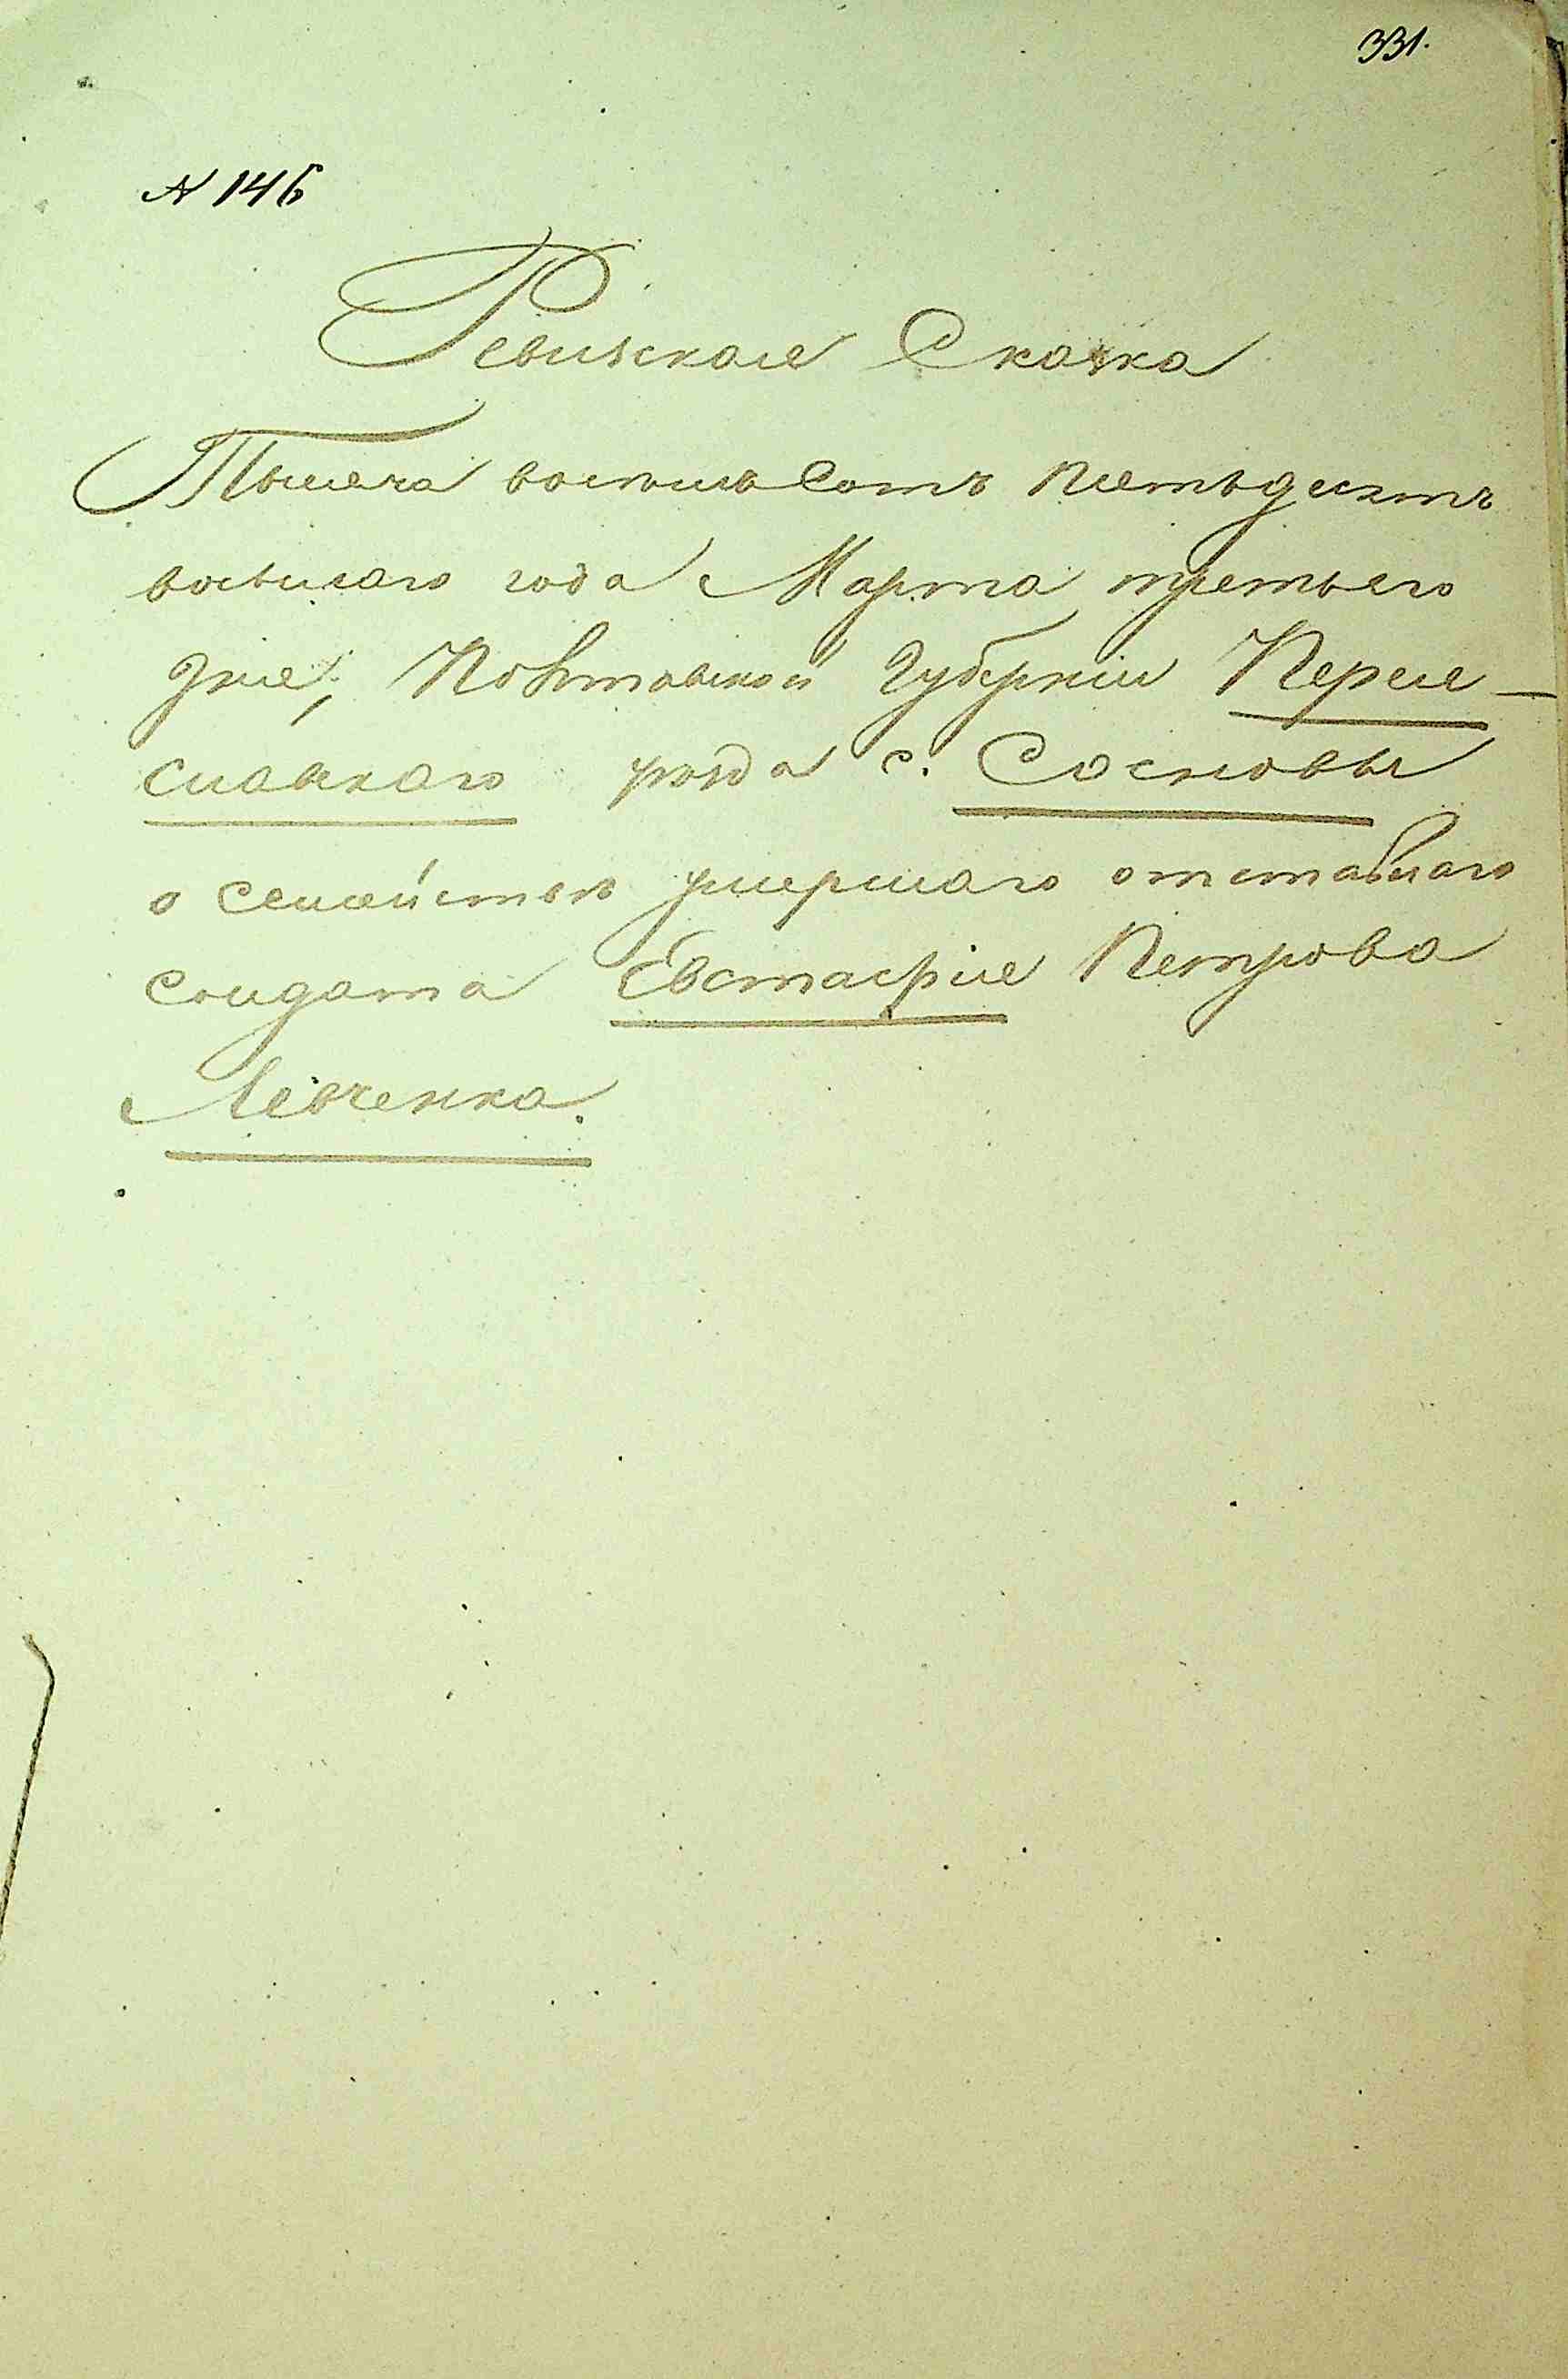 331.
№ 146
Ревизская Сказка
Тысяча восемь сотъ пятьдесятъ
восьмаго года Марта третьяго
дня, Полтавской Губерніи Перея-
славскаго уезда с. Сосновы
о семействѣ умершаго отставнаго
солдата Евстафія Петрова
Левченка.